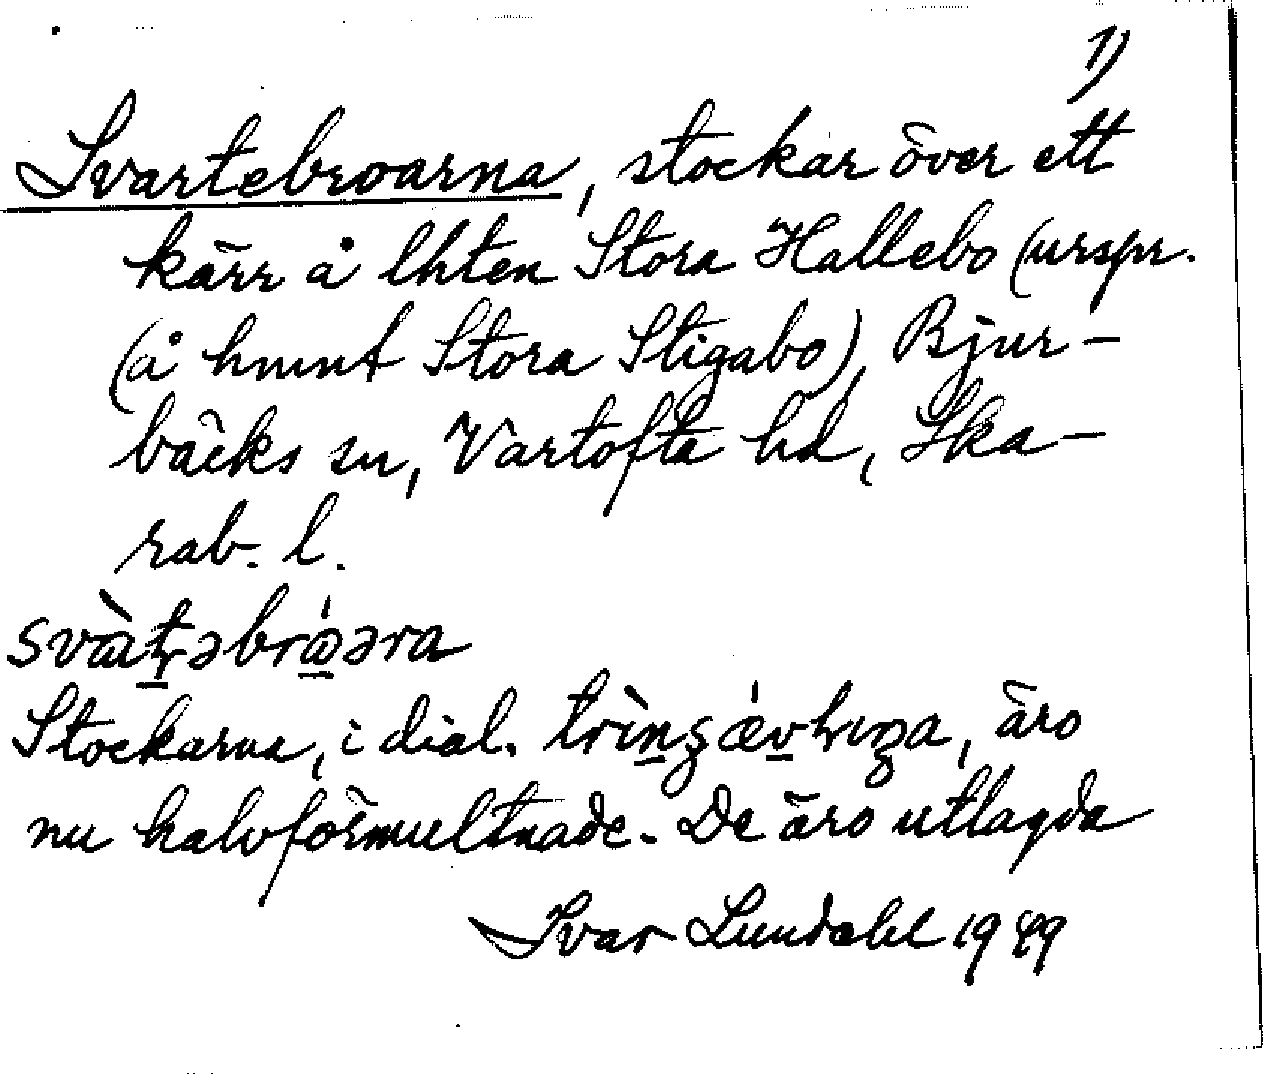 1)
Svartebroarna, stockar över ett
kärr å lhten Stora Hallebo (urspr.
(å hmnt Stora Stigabo), Bjur-
bäcks sn, Vartofta hd, Ska-
rab. l.
Stockarna, i dial. äro
nu halvförmultnade. De äro utlagda
Ivar Lundahl 1949